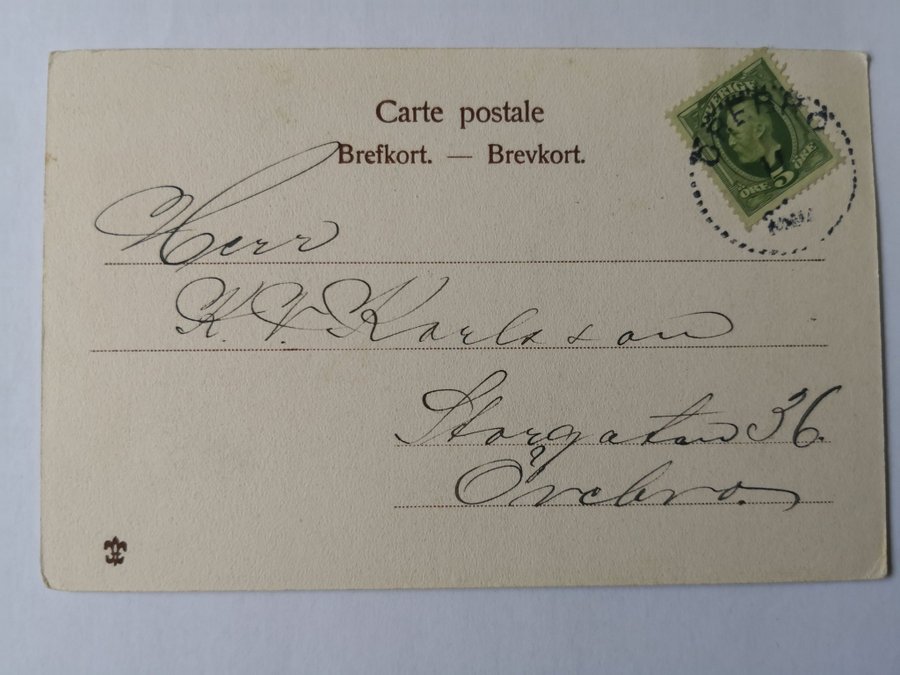 Carte postale
Brefkort. — Brevkort.
SVERIGE
5
ÖRE ÖRE
ÖREBRO
Herr
K. V. Karlsson
Storgatan 36.
Örebro.